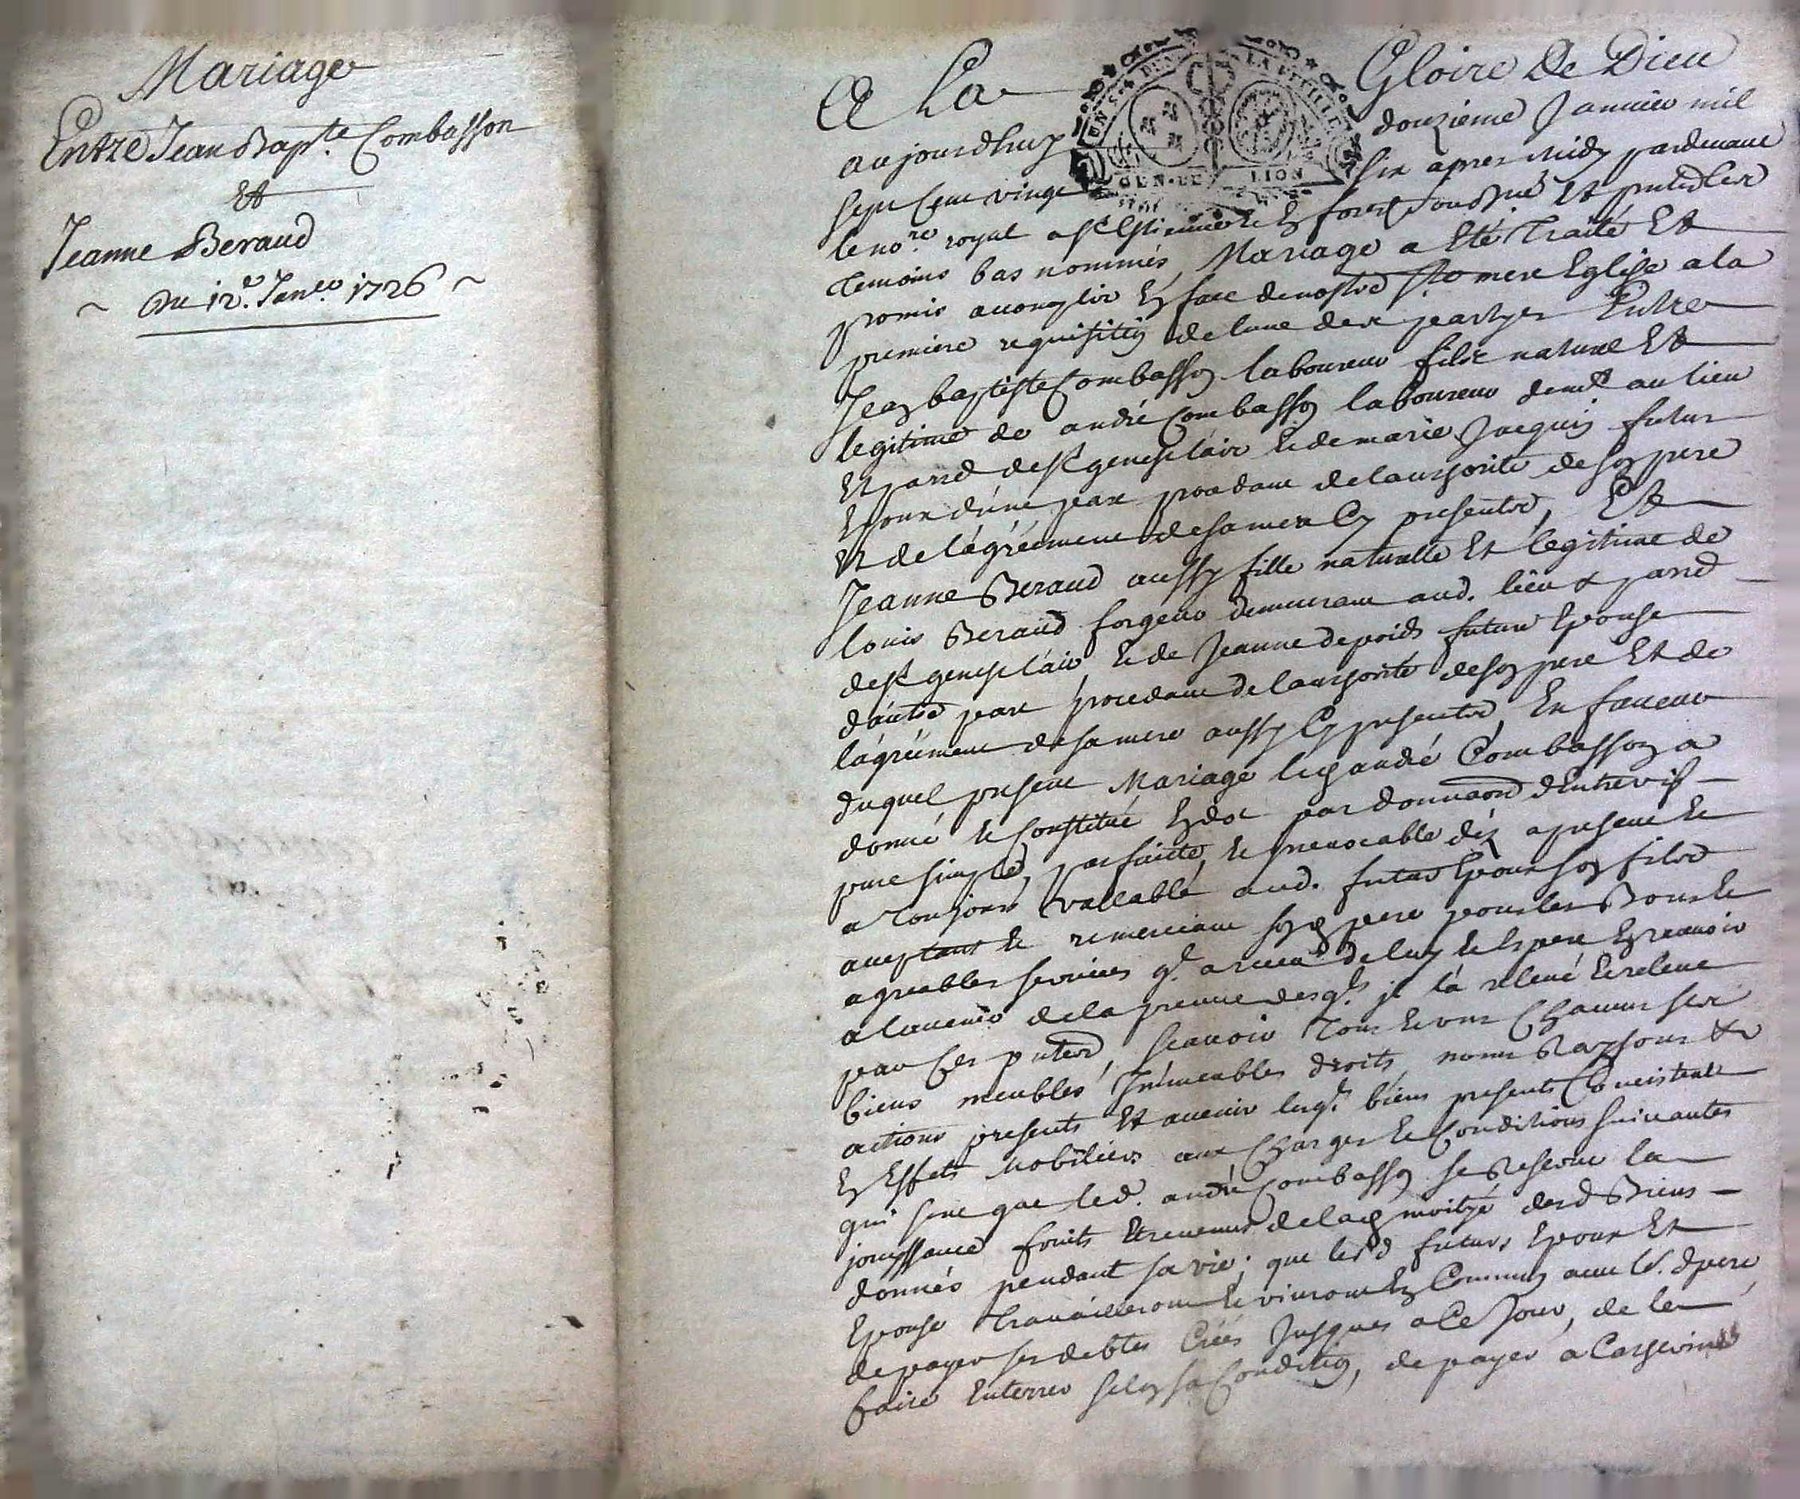 Mariage
Entre Jean Bap.te Combasson
Et
Jeanne Beraud
~ Du 12.e Janer. 1726 ~
A La Gloire De Dieu
aujourdhuy douzieme Janvier mil
sept cent vingt six apres midy pardevant
le nore. royal a St Estienne en forest soussigné et puledier
temoins bas nommés, Mariage a Eté Traité Et
promis acomplir En face de nostre Ste mere Eglise a la
premiere requisition de lune des partyes Entre
Jean baptiste Combasson laboureur filz naturel Et
legitime de andré Combasson laboureur demt. au lieu
Et parre de St genest lair et de marie Jacquin futur
Epoux dune part procedant de lauthorité de son pere
Et de lágréement de sa mere Cy presents, Et
Jeanne Beraud aussy fille naturelle Et legitime de
louis Beraud forgeur demeurant aud. lieu & parre
de St genest lair et de Jeanne depoids future Epouse
dautre part procedant de lauthorité de son pere Et de
lágréement de sa mere aussy Cy presents, En faveur
duquel present Mariage led andré Combasson a
donné et Constitué En dot par donnaon dEntrevifs
pure simple, parfaicte, et irrevocable dés a present et
a toujours vallable aud. futur Epoux son filz
aceptant et remerciant sond pere pour les Bons et
agreables services q.l a receu de luy et Espere En recevoir
a lavenir de la preuve desq.ls il lá relevé et releve
par Ces pntes, Scavoir tous et uns Chacuns ses
biens meubles, Immeubles droits, noms Raysons &
actions presents Et avenir lesq.ls biens presents Consistent
En Effets Mobiliers aux Charges et Conditions suivantes
qui sont que led. andré Combasson se Reserve la
jouyssance fruits Et revenus de lad moityé desd Biens
donnés pendant sa vie, que lesd futurs Epoux Et
Epouse travailleront et vivront En Commun avec led. pere
de payer ses debtes Créés Jusques a Ce Jour, de le
faire Enterrer selon sa Condition, de payer á